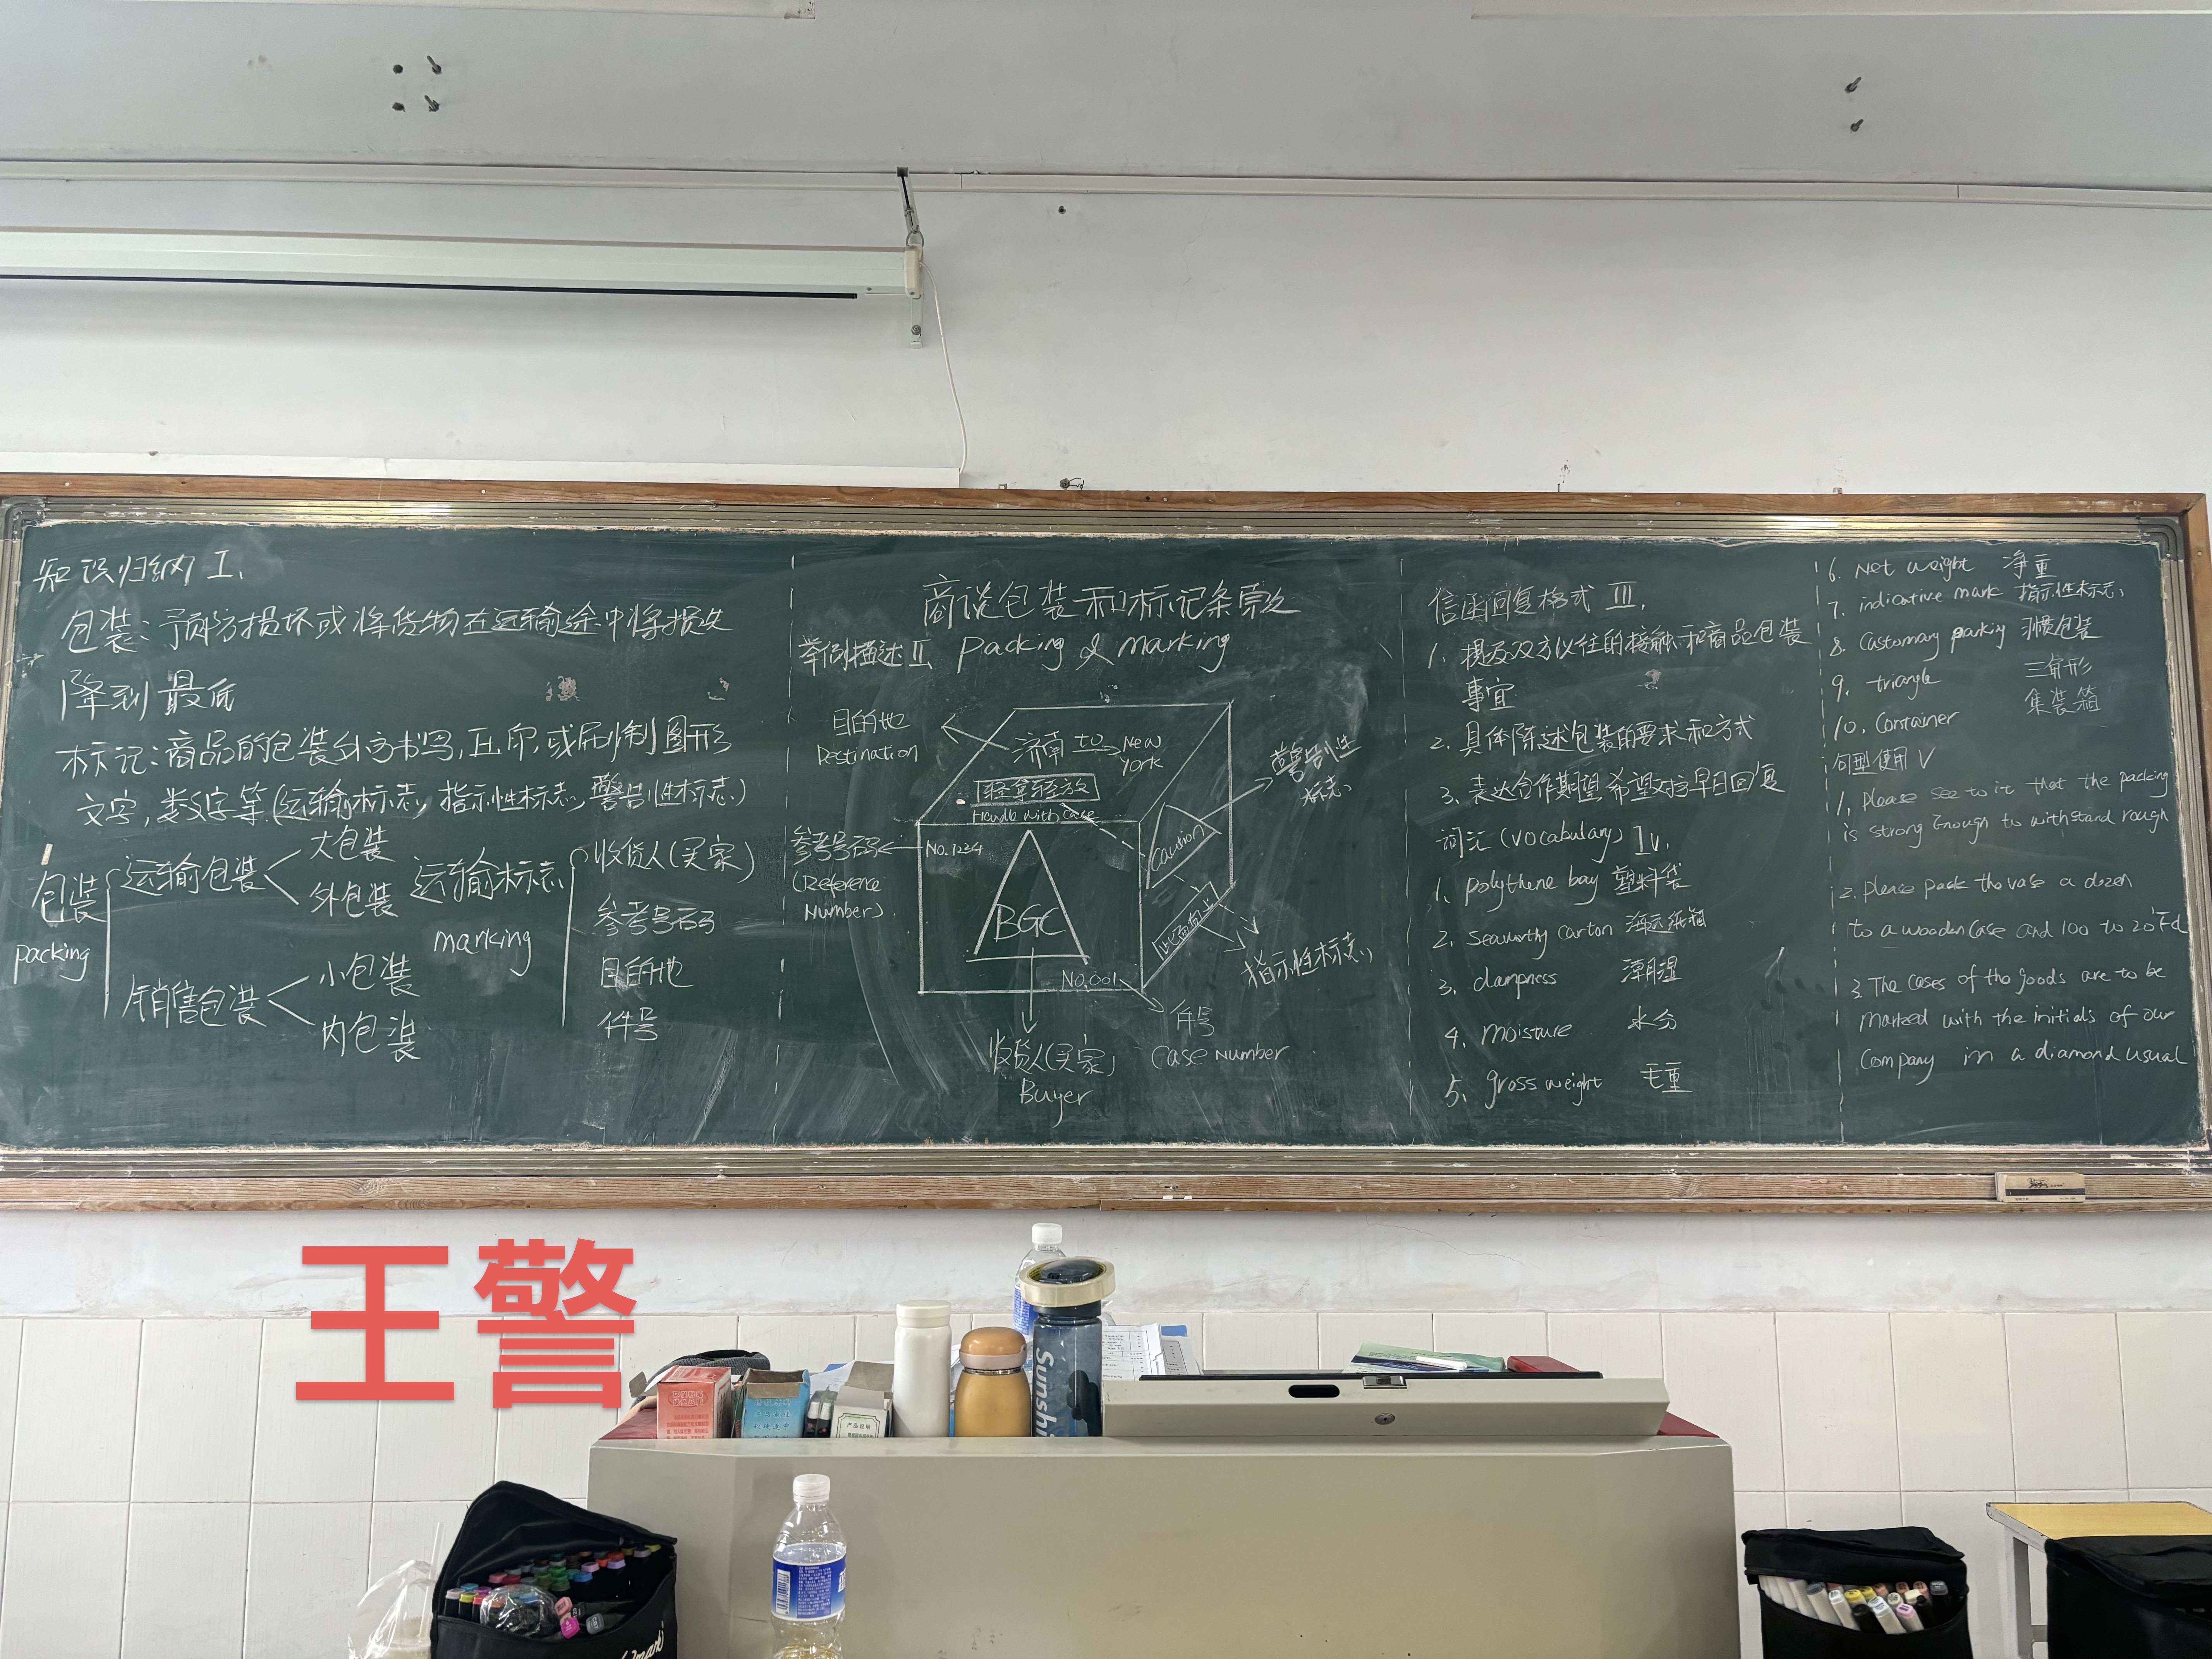 知识归纳 I.
包装:预防损坏或将货物在运输途中将损失
降到最底
标记:商品的包装外方书写,压印,或刷制图形
文字,数字等.(运输标志,指示性标志,警告性标志)
包装 packing
运输包装
大包装
外包装
销售包装
小包装
内包装
运输标志
marking
收货人(买家)
参考号码
目的地
件号
商谈包装和标记条款
举例描述 II. Packing & Marking
目的地
Destination
济南 to New York
轻拿轻放
Handle with case
参考号码
(Reference
Number).
No.1234
BGC
Caution
此面向上
警告性
标志
指示性标志
No.001
件号
Case Number
收货人(买家)
Buyer
信函回复格式 III.
1. 提及双方以往的接触和商品包装
事宜
2. 具体陈述包装的要求和方式
3. 表达合作期望 希望对方早日回复
词汇 (Vocabulary) IV.
1. polythene bay 塑料袋
2. seaworthy carton 海运纸箱
3. dampness 潮湿
4. moisture 水分
5. gross weight 毛重
6. Net weight 净重
7. indicative mark 指示性标志
8. Customary packing 习惯包装
9. triangle 三角形
10. Container 集装箱
句型使用 V
1. Please see to it that the packing
is strong Enough to withstand rough
2. please pack the vase a dozen
to a wooden case and 100 to 20'
3. The cases of the goods are to be
marked with the initials of our
Company in a diamond usual
王警
Sunshi
产品说明